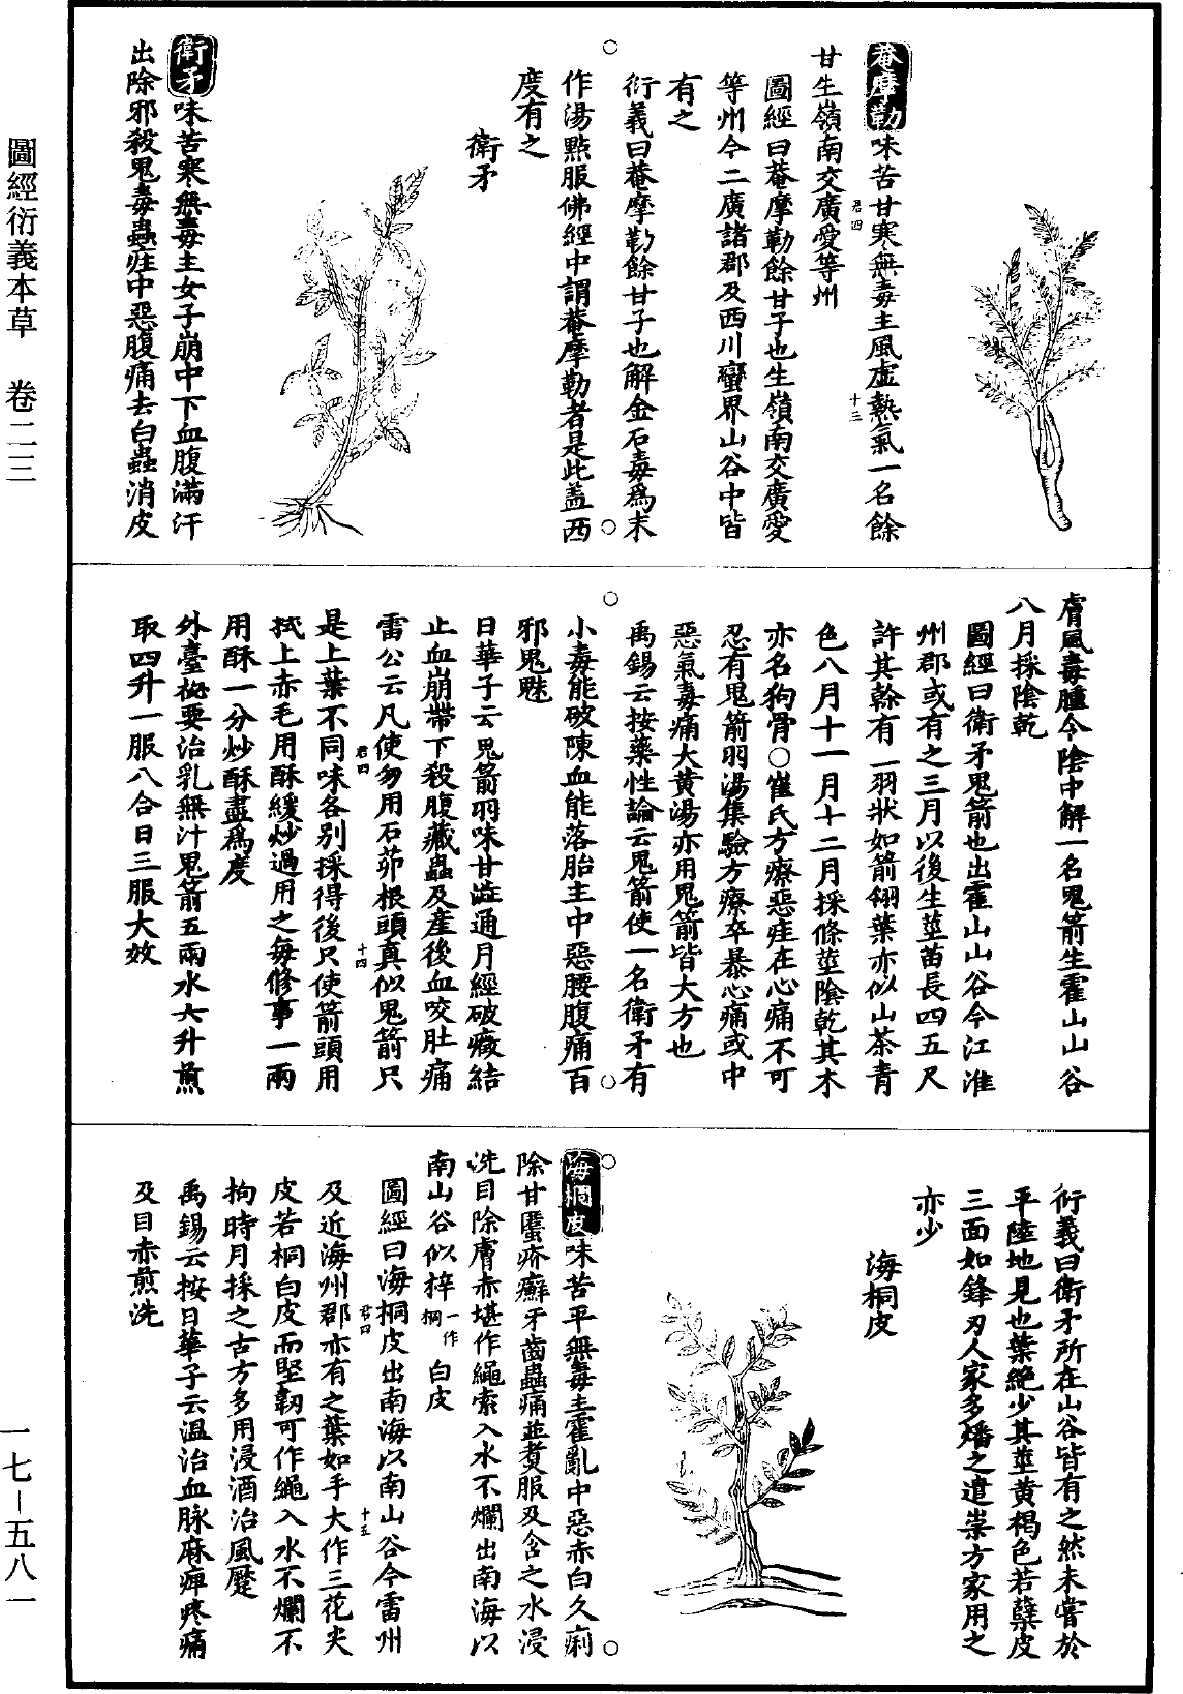 菴摩勒味苦甘寒無毒主風虛熱氣一名餘
甘生嶺南交廣愛等州
圖經曰菴摩勒餘甘子也生嶺南交廣愛
等州今二廣諸郡及西川蠻界山谷中皆
有之
衍義曰菴摩勒餘甘子也解金石毒爲末
作湯點服佛經中謂菴摩勒者是此盖西
度有之
衛矛
衛矛味苦寒無毒主女子崩中下血腹滿汗
出除邪殺鬼毒蟲疰中惡腹痛去白蟲消皮
膚風毒腫令陰中解一名鬼箭生霍山山谷
八月採陰乾
圖經曰衛矛鬼箭也出霍山山谷今江淮
州郡或有之三月以後生莖苗長四五尺
許其榦有一羽狀如箭翎葉亦似山茶青
色八月十一月十二月採條莖陰乾其木
亦名狗骨○崔氏方療惡疰在心痛不可
忍有鬼箭羽湯集驗方療卒暴心痛或中
惡氣毒痛大黄湯亦用鬼箭皆大方也
禹錫云按藥性論云鬼箭使一名衛矛有
小毒能破陳血能落胎主中惡腰腹痛百
邪鬼魅
日華子云鬼箭羽味甘澁通月經破癥結
止血崩帶下殺腹藏蟲及産後血咬肚痛
雷公云凡使勿用石茆根頭真似鬼箭只
是上葉不同味各別採得後只使箭頭用
拭上赤毛用酥緩炒過用之每修事一兩
用酥一分炒酥盡爲度
外臺祕要治乳無汁鬼箭五兩水六升煎
取四升一服八合日三服大效
衍義曰衛矛所在山谷皆有之然未嘗於
平陸地見也葉絶少其莖黄褐色若蘗皮
三面如鋒刃人家多燔之遣祟方家用之
亦少
海桐皮
海桐皮味苦平無毒主霍亂中惡赤白久痢
除甘䘌疥癬牙齒蟲痛並煑服及含之水浸
洗目除膚赤堪作繩索入水不爛出南海以
南山谷似梓一作桐白皮
圖經曰海桐皮出南海以南山谷今雷州
及近海州郡亦有之葉如手大作三花尖
皮若桐白皮而堅韌可作繩入水不爛不
拘時月採之古方多用浸酒治風蹷
禹錫云按日華子云温治血脉麻痺疼痛
及目赤煎洗
君四
十三
君四
十四
君四
十五
圖經衍義本草　卷二三
一七－五八一